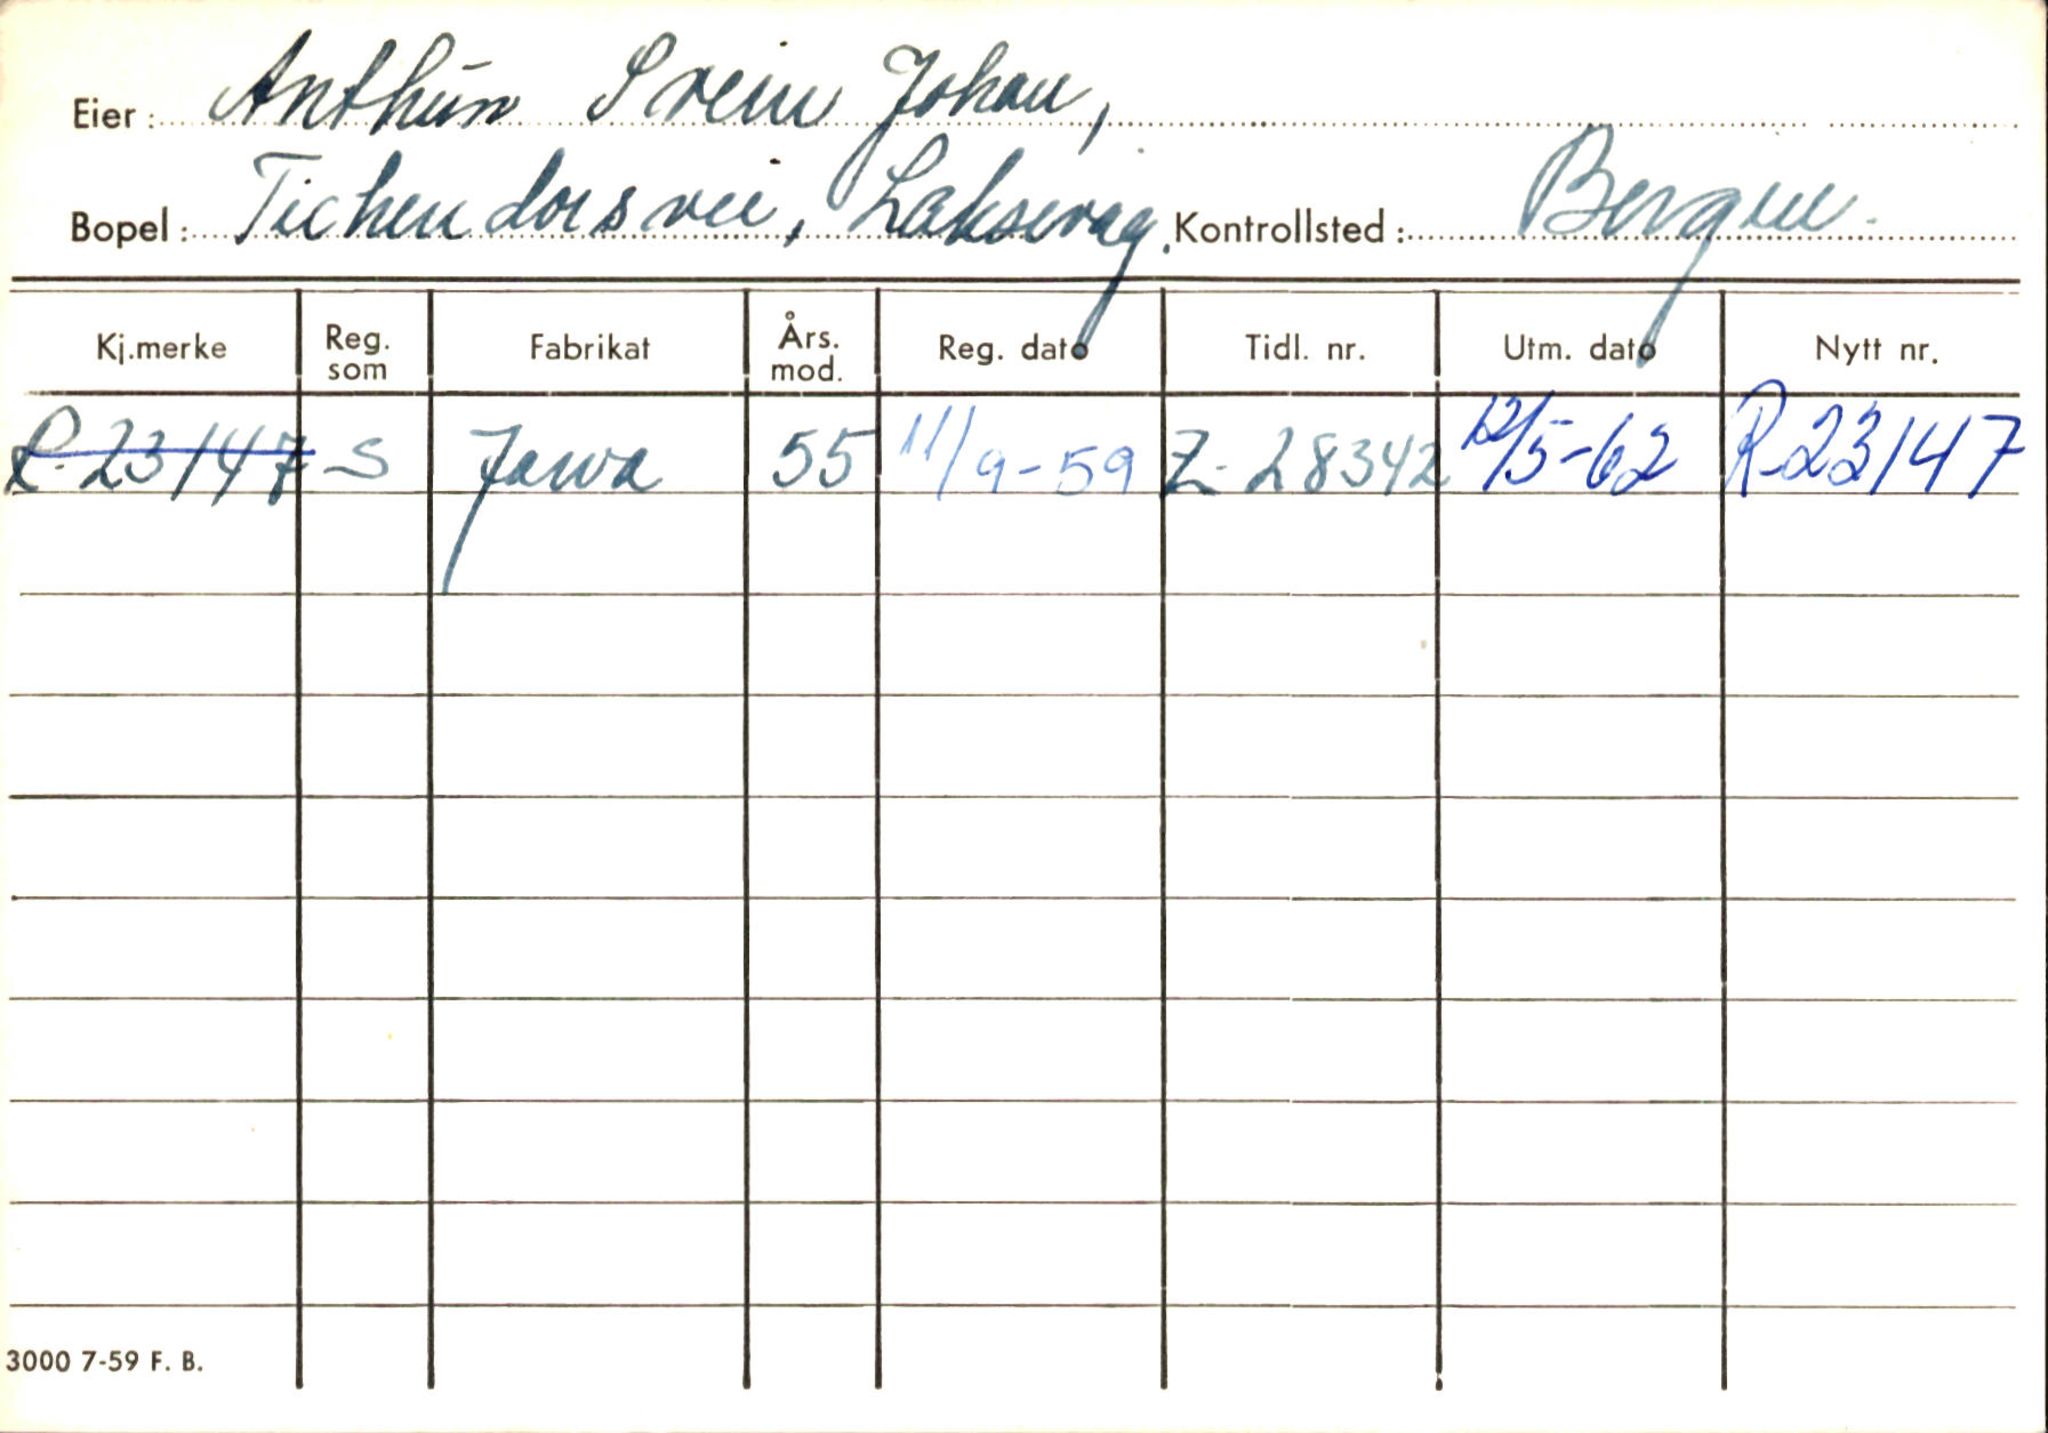 Eier: Anthun Svein Johan,
Bopel: Tichendorsvei, Laksevåg. Kontrollsted: Bergen.
Kj.merke Reg. som Fabrikat Års. mod. Reg. dato Tidl. nr. Utm. dato Nytt nr.
R-23147 S Jawa 55 11/9-59 Z-28342 12/5-62 R-23147
3000 7-59 F. B.